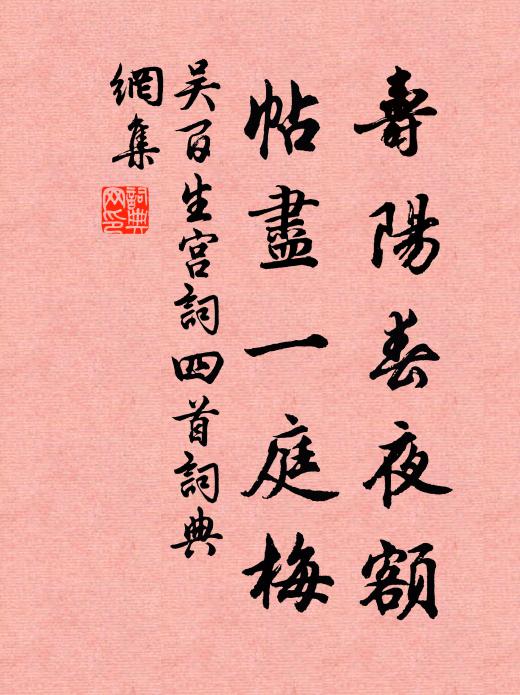 壽陽春夜額
帖盡一庭梅
吴百生宫詞四首詞典
網集
詞典网印